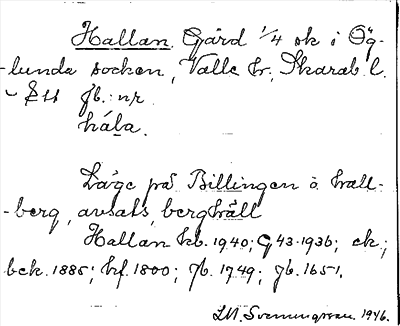 Hallan. Gård 1/4 sk i Ög-
lunda socken, Valle hr, Skarab. l.
jb. nr
hála.
Läge på Billingen å hall-
berg, avsats, berghäll
Hallan kb. 1940; G 43 1936; ek;
bck. 1885; hf. 1800; jb. 1749; jb. 1651.
1946.